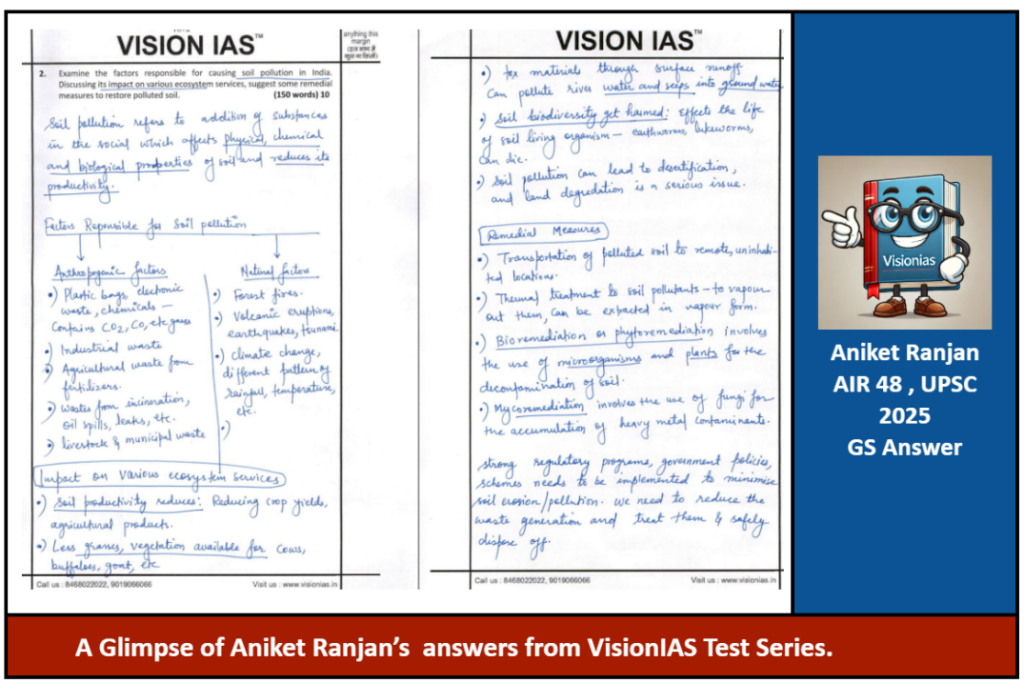 VISION IAS™
anything this
margin
2. Examine the factors responsible for causing soil pollution in India.
Discussing its impact on various ecosystem services, suggest some remedial
measures to restore polluted soil. (150 words) 10
Soil pollution refers to addition of substances
in the social which affects physical, chemical
and biological properties of soil and reduces its
productivity.
Factors Responsible for Soil pollution
Anthropogenic factors
•) Plastic bags, electronic
waste, chemicals –
Contains CO2, CO, etc gases
•) Industrial waste
•) Agricultural waste from
fertilizers.
•) Wastes from incineration,
oil spills, leaks, etc.
•) livestock & municipal waste
Natural factors
•) Forest fires.
•) Volcanic eruptions,
earthquakes, tsunami.
•) Climate change,
different pattern of
rainfall, temperature,
etc.
•)
Impact on Various ecosystem Services
•) Soil productivity reduces: Reducing crop yields,
agricultural products.
•) Less grasses, vegetation available for cows,
buffaloes, goat, etc
Call us : 8468022022, 9019066066 Visit us : www.visionias.in
VISION IAS™
•) materials through surface runoff
Can pollute river water and seeps into ground water
•) Soil biodiversity get harmed: effects the life
of soil living organism – earthworms,
can die.
•) Soil pollution can lead to desertification,
and land degradation is a serious issue.
Remedial Measures
•) Transportation of polluted soil to remote, uninhabi-
ted locations.
•) Thermal treatment to soil pollutants – to vapour
out them, can be extracted in vapour form.
•) Bioremediation or phytoremediation involves
the use of microorganisms and plants for the
decontamination of soil.
•) Mycoremediation involves the use of fungi for
the accumulation of heavy metal contaminants.
strong regulatory programs, government policies,
schemes needs to be implemented to minimise
soil erosion/pollution. We need to reduce the
waste generation and treat them & safely
dispose off.
Call us : 8468022022, 9019066066 Visit us : www.visionias.in
Visionias
Aniket Ranjan
AIR 48 , UPSC
2025
GS Answer
A Glimpse of Aniket Ranjan's answers from VisionIAS Test Series.